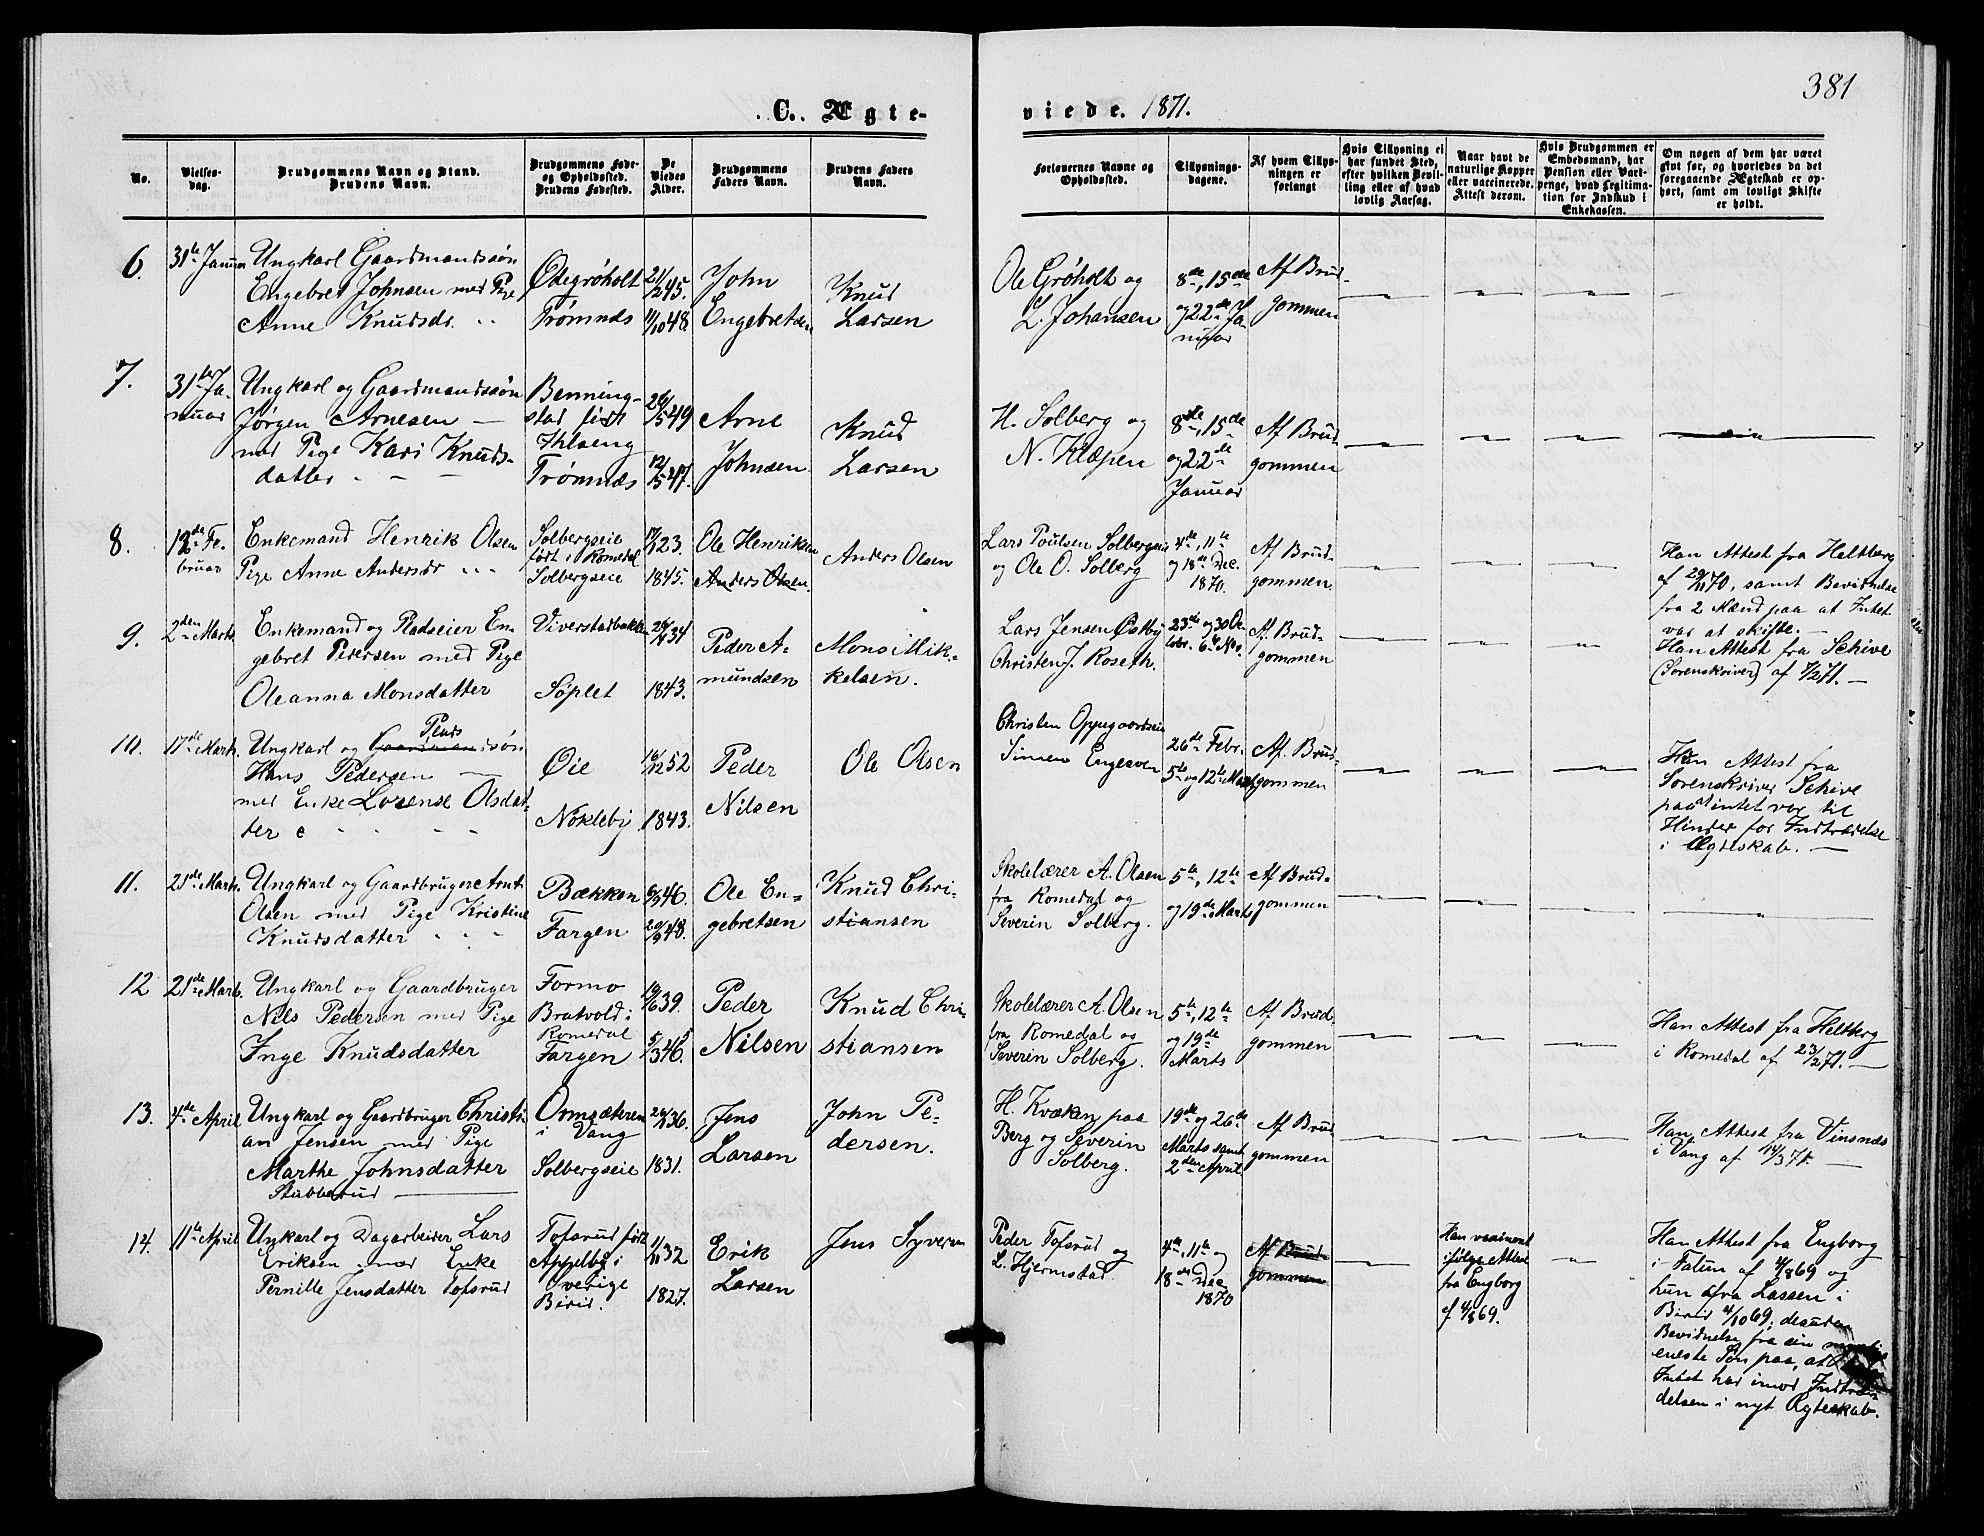 381
C. Ægte-
viede. 1871.
No.
Vielses-
dag.
Brudgommens Navn og Stand.
Brudens Navn.
Brudgommens Føde-
og Opholdssted.
Brudens Fødested.
De
Viedes
Alder.
Brudgommens
Faders Navn.
Brudens Faders
Navn.
Forlovernes Navne og
Opholdssted.
Tillysnings-
dagene.
Af hvem Tillys-
ningen er
forlangt
Hvis Tillysning ei
har fundet Sted,
efter hvilken Bevil-
ling eller af hvad
lovlig Aarsag.
Naar havt de
naturlige Kopper
eller vaccinerede.
Attest derom.
Hvis Brudgommen er
Embedsmand, har
Pension eller Vart-
penge, hvad Legitima-
tion for Indskud i
Enkekassen.
Om nogen af dem har været
gift før, og hvorledes da det
foregaaende Ægteskab er op-
hørt, samt om lovligt Skifte
er holdt.
6.
31te Januar
Ungkarl Gaardmandssøn
Engebret Johnsen med Pige
Anne Knudsdr.
Ødegrøholt
Trømnds
21/2 45.
11/10 48
John
Engebretsen
Knud
Larsen
Ole Grøholt og
L. Johansen
8de, 15de
og 22de Ja
nuar
Af Brud
gommen
7.
31te Ja-
nuar
Ungkarl og Gaardmandssøn
Jørgen Arnesen
med Pige Kari Knuds-
datter
Benning-
stad født
Ihlseng
Trømnæs
26/5 49
12/5 47.
Arne
Johnsen
Knud
Larsen
H. Solberg og
N. Klæpen
8de, 15de
og 22de
Januar
Af Brud
gommen
8.
12de Fe-
bruar
Enkemand Henrik Olsen
Pige Anne Andersdr
Solbergseie
født i Romedal
Solbergseie
23.
1845.
Ole Henriksen
Anders Olsen.
Anders Olsen
Lars Poulsen Solbergseie
og Ole O. Solberg
4de, 11te
og 18de Dec.
1870.
Af Brud-
gommen.
Han Attest fra Heltberg
af 29/11 70, samt Bevidnelse
fra 2 Mænd paa at Intet
var at skifte.
9.
2den Marts.
Enkemand og Pladseier En-
gebret Pedersen med Pige
Oleanna Monsdatter
Viverstadbakken
Søplet
34
1843.
Peder A-
mundsen
Mons Mik-
kelsen.
Lars Jensen Østby
Christen J. Roseth.
23de og 30 Oc
tobr. 6te Nov.
Af Brud-
gommen
Han Attest fra Schive
(Sorenskriver) af 7/2 71.
10.
17de Marts.
Plads
Ungkarl og Gaardmandssøn
Hans Pedersen
med Enke Lorense Olsdat-
ter
Øie
Nøkleby
16/12 52
1843.
Peder
Nilsen
Ole Olsen
Christen Oppegaardseie
Simen Engesven
26de Febr.
5te og 12te Marts
Af. Brud-
gommen
Hun Attest fra
Sorenskriver Schive
paa at intet var til
Hinder for Indtrædelse
i Ægteskab.
11.
21de Marts.
Ungkarl og Gaardbruger Arnt
Olsen med Pige Kristine
Knudsdatter
Bækken
Fargen
6/9 46.
20/9 48.
Ole En-
gebretsen
Knud Chri-
stiansen
Skolelærer A. Olsen
fra Romedal og
Severin Solberg.
5te, 12te
og 19de Marts
Af Brud-
gommen
12
21de Marts.
Ungkarl og Gaardbruger
Nils Pedersen med Pige
Inge Knudsdatter
Formo
Bratvold i
Romedal
Fargen
19/6 39.
5/3 46.
Peder
Nilsen
Knud Chri-
stiansen
Skolelærer A. Olsen
fra Romedal og
Severin Solberg.
5te, 12te
og 19de
Marts
Af Brud-
gommen
Han Attest fra Heltberg
i Romedal af 23/2 71.
13.
4de April
Ungkarl og Gaardbruger Christi-
an Jensen med Pige
Marthe Johnsdatter
Stubberud
Ormsæteren
i Vang
Solbergseie
36.
1831.
Jens
Larsen
John Pe-
dersen.
H. Kvæken paa
Berg og Severin
Solberg.
19de og 26de
Marts samt
2den April
Af Brud
gommen
Han Attest fra Vinsnæs
i Vang af 14/3 71.
14.
11te April
Unkarl og Dagarbeider Lars
Eriksen med Enke
Pernille Jensdatter Tofsrud
Tofsrud født
Appelbo i
Sverige
Birid.
11/11 32
1827.
Erik
Larsen
Jens Syversen
Peder Tofsrud og
L. Hjermstad
4de, 11te og
18de Dec.
1870
Af Brud
gommen
Han vaccineret
ifølge Attest
fra Engborg
af 4/8 69.
Han Attest fra Engborg
i Falun af 4/8 69 og
hun fra Lassen i
Birid 4/10 69, desuden
Bevidnelse fra sin myndige
eneste Søn paa, at
Intet har imod Indtræ-
delsen i nyt Ægteskab.